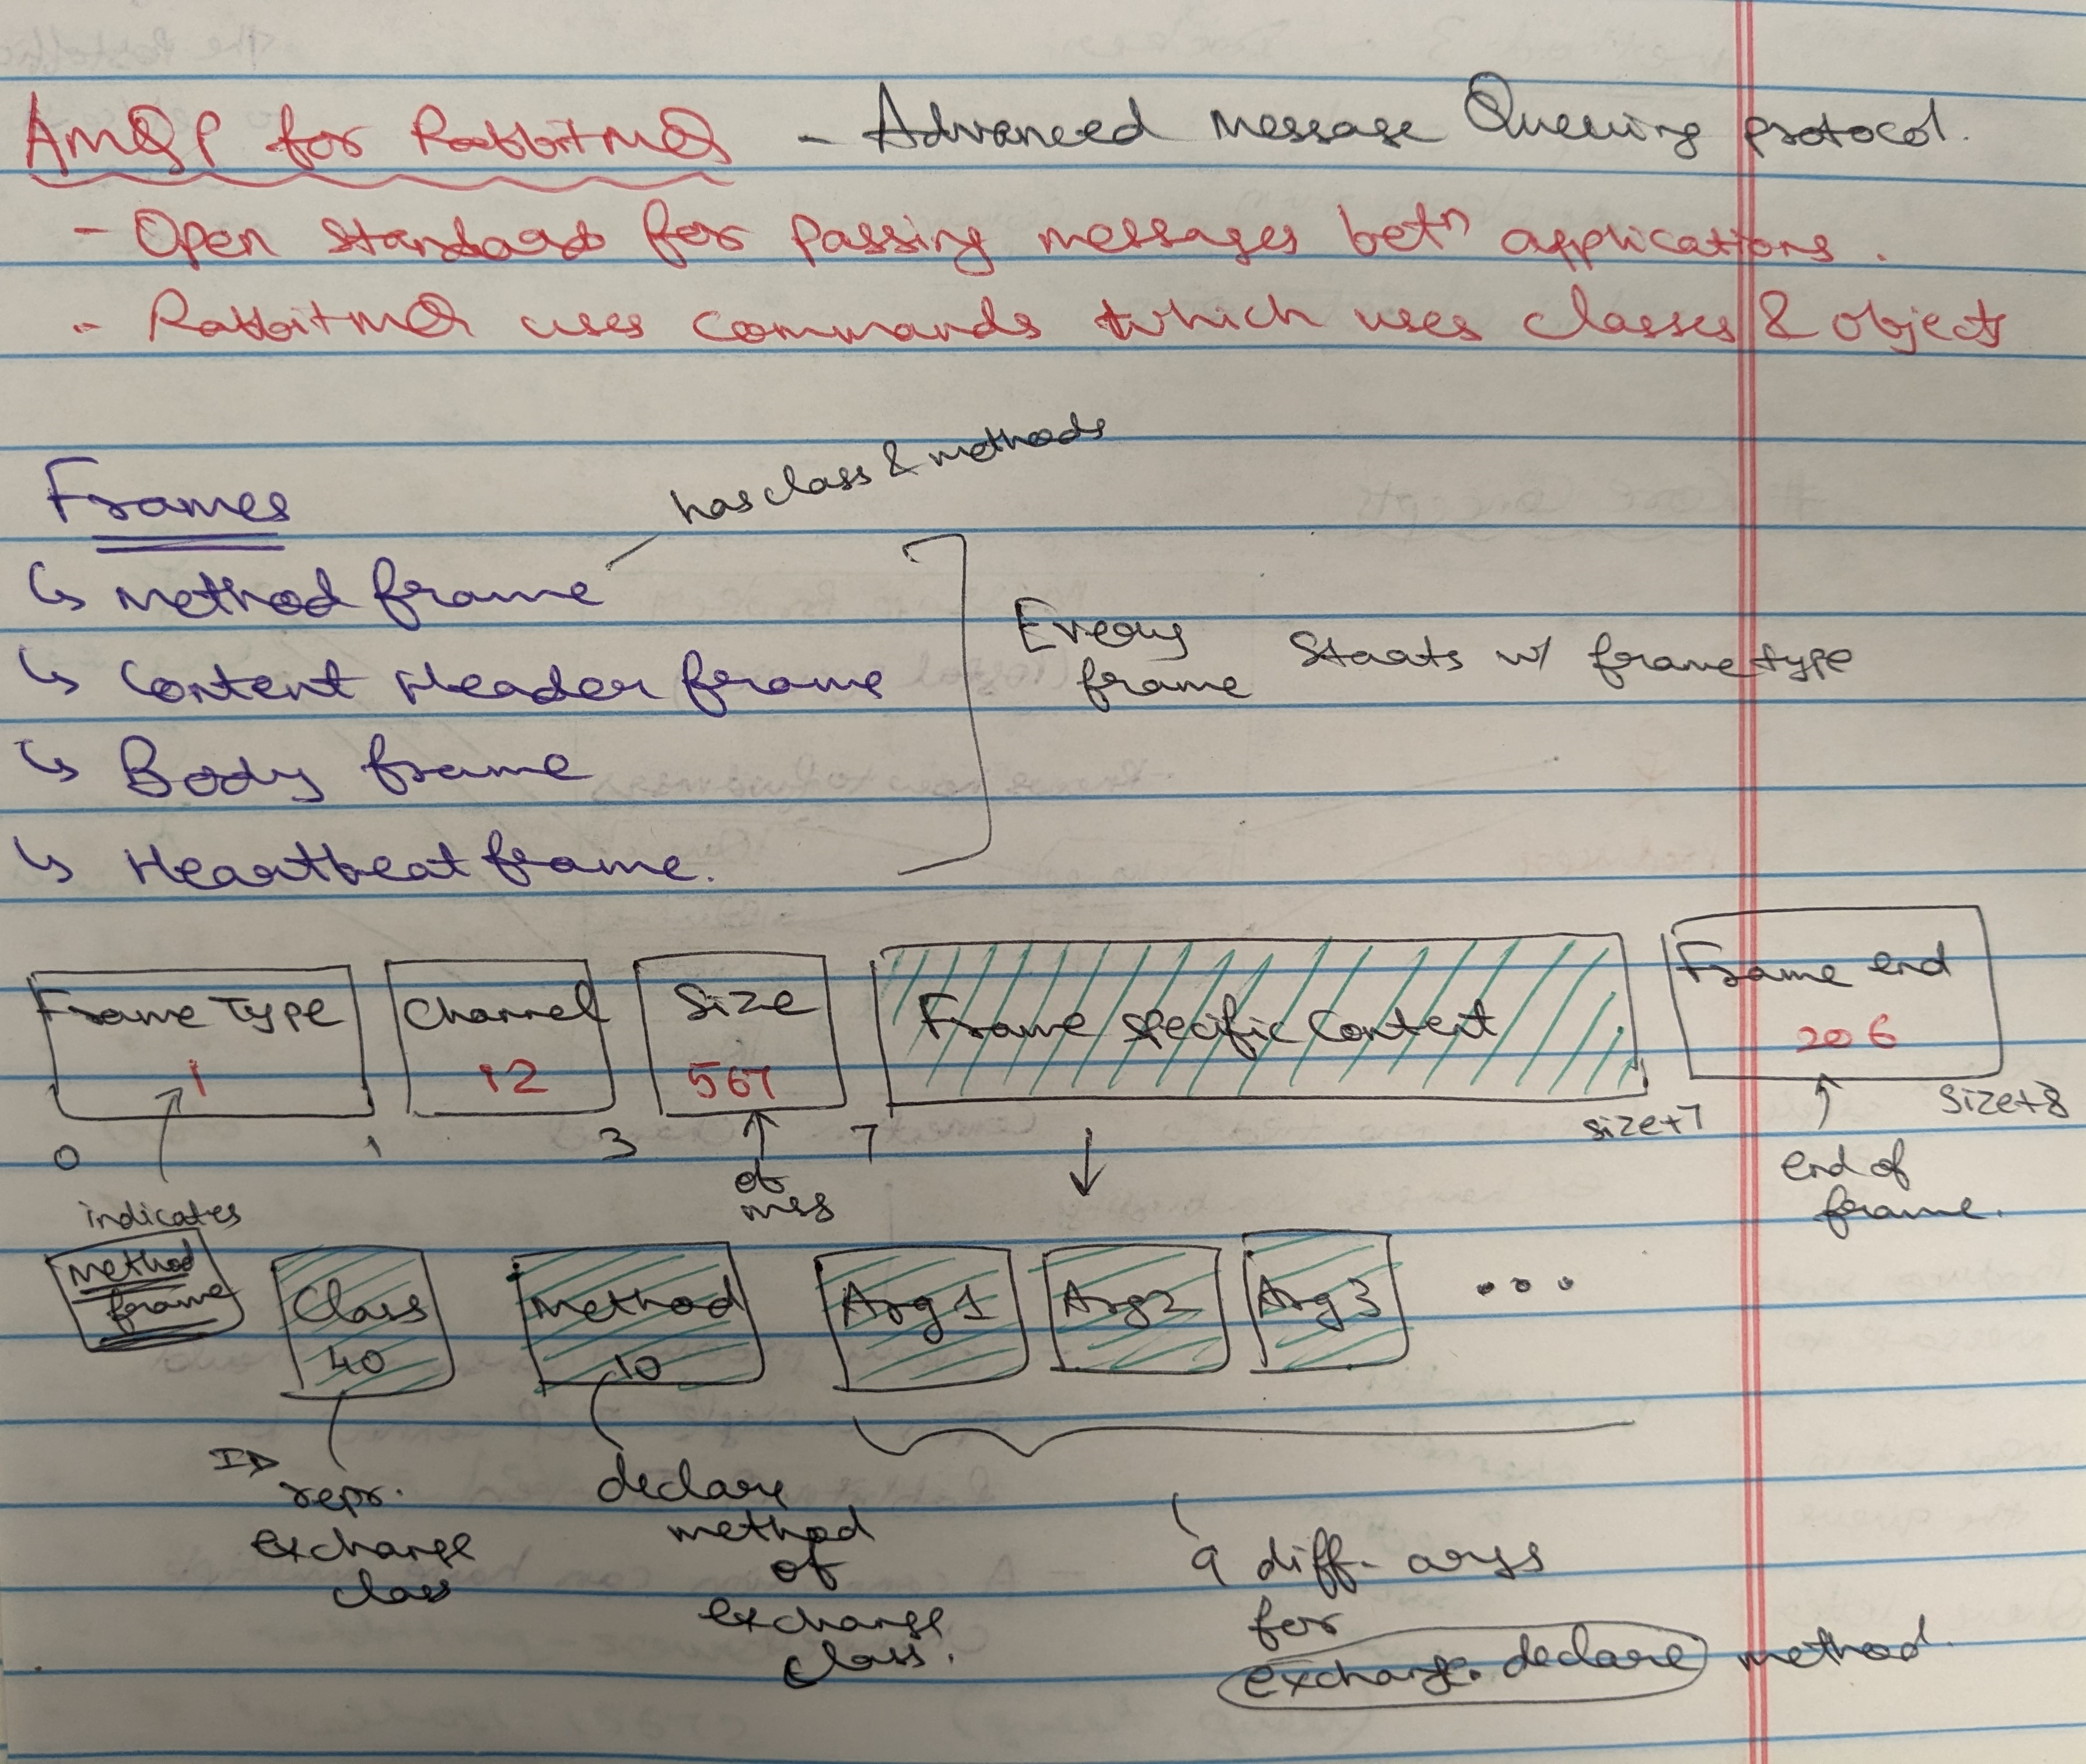 AMQP for RabbitMQ - Advanced Message Queuing protocol.
- Open standard for passing messages betn applications.
- RabbitMQ uses commands which uses classes & objects
Frames
has class & methods
↳ Method frame
↳ Content Header frame
↳ Body frame
↳ Heartbeat frame.
Every frame starts w/ frame type
Frame Type Channel Size Frame Specific Content Frame end
1 12 567 206
0 1 3 7 size+7 size+8
indicates method frame
of msg
end of frame.
Class Method Arg1 Arg2 Arg3 ...
40 10
ID repr. exchange class
declare method of exchange class.
9 diff. args for exchange.declare method.